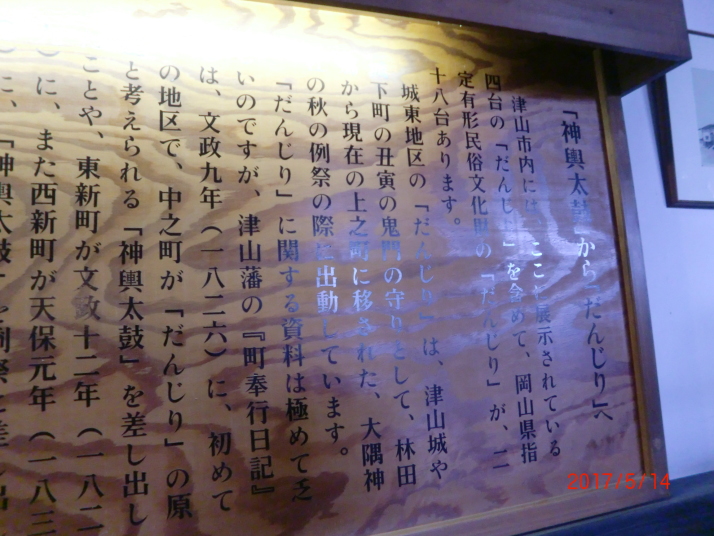 「神輿太鼓」から「だんじり」へ
津山市内には、ここに展示されている
四台の「だんじり」を含めて、岡山県指
定有形民俗文化財の「だんじり」が、二
十八台あります。
城東地区の「だんじり」は、津山城や
下町の丑寅の鬼門の守りとして、林田
から現在の上之町に移された、大隅神
の秋の例祭の際に出動しています。
「だんじり」に関する資料は極めて乏
いのですが、津山藩の『町奉行日記』
は、文政九年(一八二六)に、初めて
の地区で、中之町が「だんじり」の原
と考えられる「神輿太鼓」を差し出し
ことや、東新町が文政十二年(一八二
に、また西新町が天保元年(一八三
に、「神輿太鼓」を例祭に差し出し
2017/5/14